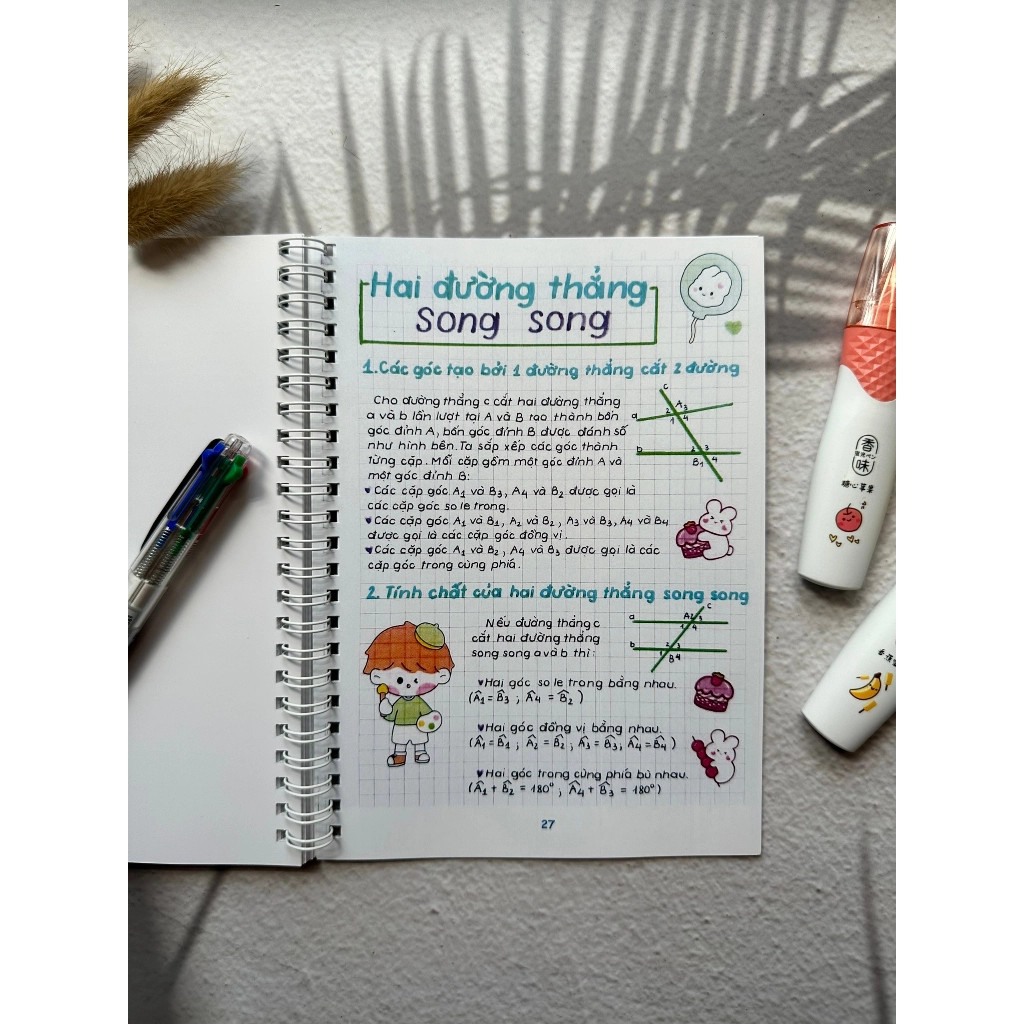 Hai đường thẳng
song song
1. Các góc tạo bởi 1 đường thẳng cắt 2 đường
Cho đường thẳng c cắt hai đường thẳng
a và b lần lượt tại A và B tạo thành bốn
góc đỉnh A, bốn góc đỉnh B được đánh số
như hình bên. Ta sắp xếp các góc thành
từng cặp. Mỗi cặp gồm một góc đỉnh A và
một góc đỉnh B:
c
A 3
2
a
1 4
b
2 3
B 1 4
♥ Các cặp góc A1 và B3, A4 và B2 được gọi là
các cặp góc so le trong.
♥ Các cặp góc A1 và B1, A2 và B2, A3 và B3, A4 và B4
được gọi là các cặp góc đồng vị.
♥ Các cặp góc A1 và B2, A4 và B3 được gọi là các
cặp góc trong cùng phía.
2. Tính chất của hai đường thẳng song song
Nếu đường thẳng c
cắt hai đường thẳng
song song a và b thì:
c
a
A2 3
1 4
b
2 3
1 B 4
♥ Hai góc so le trong bằng nhau.
(Â1 = B̂3 ; Â4 = B̂2)
♥ Hai góc đồng vị bằng nhau.
(Â1 = B̂1 ; Â2 = B̂2 ; Â3 = B̂3 ; Â4 = B̂4)
♥ Hai góc trong cùng phía bù nhau.
(Â1 + B̂2 = 180° ; Â4 + B̂3 = 180°)
27
香
味
糖心苹果